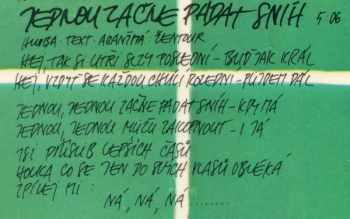 JEDNOU ZAČNE PADAT SNÍH 5:06
HUDBA · TEXT · ARANŽMÁ ŽENTOUR
HEJ, TAK SI UTŘI SLZY POSLEDNÍ - BUĎ JAK KRÁL
HEJ, VŽDYŤ SE KAŽDOU CHVÍLI ROZEDNÍ - PŮJDEM DÁL
JEDNOU, JEDNOU ZAČNE PADAT SNÍH -
JEDNOU, JEDNOU MŮŽU ZAKOPNOUT - I JÁ
JSI PŘÍSLIB LEPŠÍCH ČASŮ
HOLKA CO SE JEN DO SVÝCH VLASŮ OBLÉKÁ
ZPÍVEJ MI:
NÁ, NÁ, NÁ ........